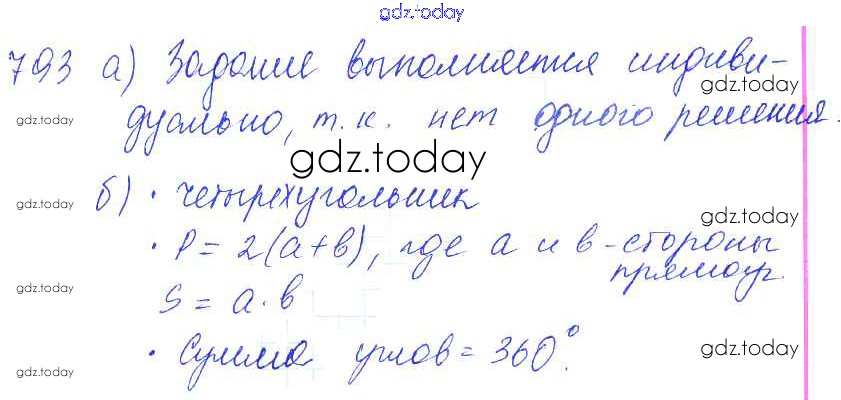 gdz.today
793 а) Задание выполняется индиви-
gdz.today
gdz.today
дуально, т.к. нет одного решения.
gdz.today
gdz.today
gdz.today
б) · четырехугольник
gdz.today
gdz.today
· P = 2(a+b), где a и b - стороны
прямоуг.
gdz.today
S = a·b
gdz.today
· Сумма углов = 360°.
gdz.today
gdz.today